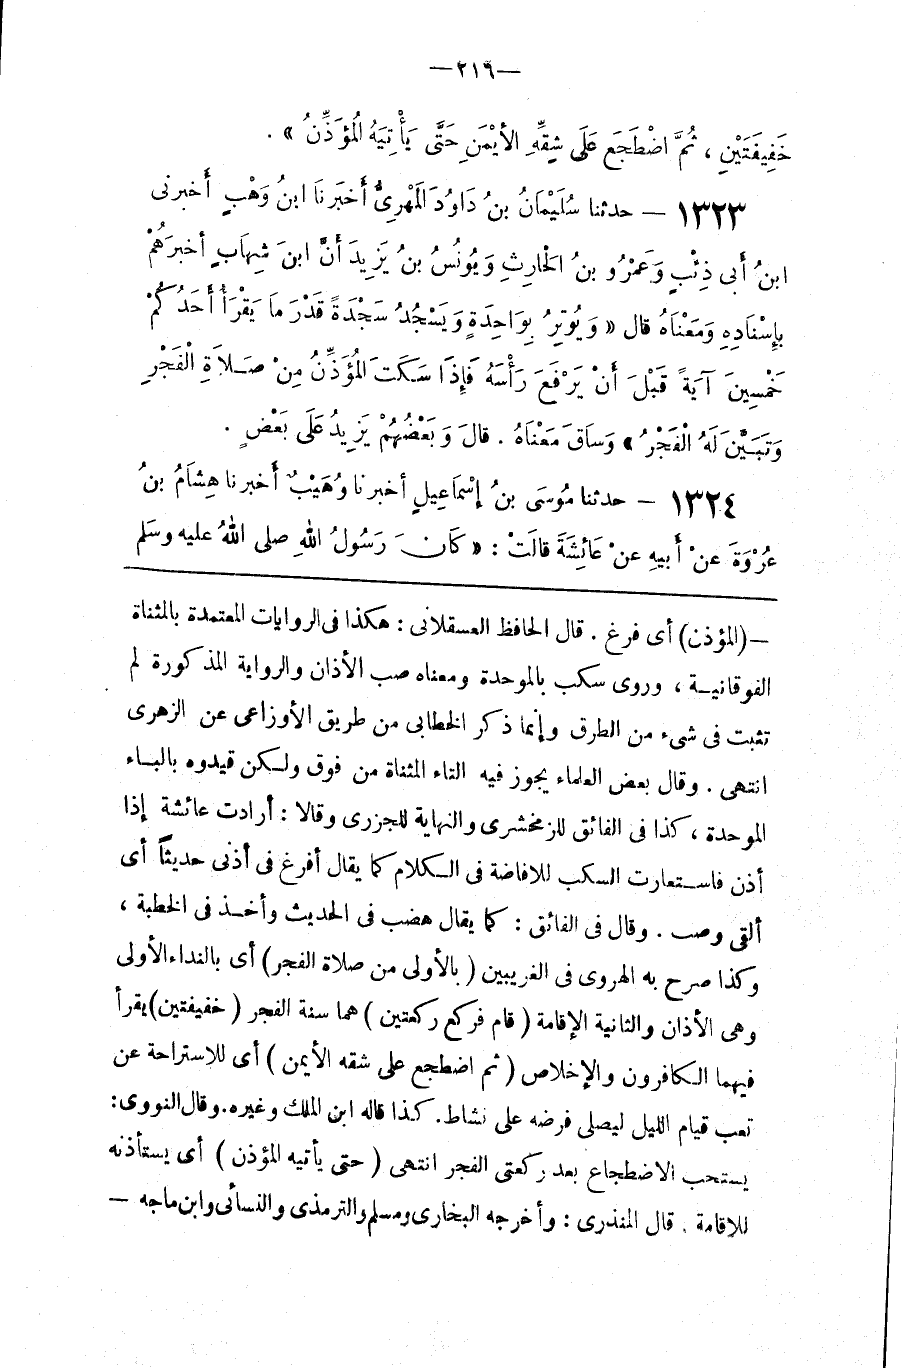 —٢١٩—
خَفِيفَتَيْنِ ، ثُمَّ اضْطَجَعَ عَلَى شِقِّهِ الأَيْمَنِ حَتَّى يَأْتِيَهُ الْمُؤَذِّنُ » .
١٣٢٣ — حدثنا سُلَيْمَانُ بنُ دَاوُدَ المَهْرِىُّ أَخبَرَنَا ابنُ وَهْبٍ أَخبرنى
ابنُ أَبى ذِئْبٍ وَعَمْرُو بنُ الْحَارِثِ وَيُونُسُ بنُ يَزِيدَ أَنَّ ابنَ شِهَابٍ أخبرَهُمْ
بِإِسْنَادِهِ وَمَعْنَاهُ قال « وَيُوتِرُ بِوَاحِدَةٍ وَيَسْجُدُ سَجْدَةً قَدْرَ مَا يَقْرَأُ أَحَدُكُمْ
خَمْسِينَ آيَةً قَبْلَ أَنْ يَرْفَعَ رَأْسَهُ فَإِذَا سَكَتَ المُؤَذِّنُ مِنْ صَلاَةِ الْفَجْرِ
وَتَبَيَّنَ لَهُ الْفَجْرُ » وَسَاقَ مَعْنَاهُ . قالَ وَبَعْضُهُمْ يَزِيدُ عَلَى بَعْضٍ .
١٣٢٤ — حدثنا مُوسَى بنُ إسْمَاعِيلِ أخبرنا وُهَيْبٌ أَخبرنا هِشَامُ بنُ
عُرْوَةَ عنْ أَبيهِ عنْ عَائِشَةَ قالَتْ : « كَانَ رَسُولُ اللهِ صلى اللهُ عليه وسَلم
—(المؤذن) أى فرغ . قال الحافظ العسقلانى : هكذا فى الروايات المعتمدة بالمثناة
الفوقانية ، وروى سكب بالموحدة ومعناه صب الأذان والرواية المذكورة لم
تثبت فى شىء من الطرق وإنما ذكر الخطابى من طريق الأوزاعى عن الزهرى
انتهى . وقال بعض العلماء يجوز فيه التاء المثناة من فوق ولكن قيدوه بالباء
الموحدة ، كذا فى الفائق للزمخشرى والنهاية للجزرى وقالا : أرادت عائشة إذا
أذن فاستعارت السكب للافاضة فى الكلام كما يقال أفرغ فى أذنى حديثاً أى
ألقى وصب . وقال فى الفائق : كما يقال هضب فى الحديث وأخذ فى الخطبة ،
وكذا صرح به الهروى فى الغريبين ( بالأولى من صلاة الفجر) أى بالنداء الأولى
وهى الأذان والثانية الإقامة ( قام فركع ركعتين ) هما سنة الفجر ( خفيفتين)يقرأ
فيهما الكافرون والإخلاص ( ثم اضطجع على شقه الأيمن ) أى للاستراحة عن
تعب قيام الليل ليصلى فرضه على نشاط. كذا قاله ابن الملك وغيره.وقال النووى:
يستحب الاضطجاع بعد ركعتى الفجر انتهى ( حتى يأتيه المؤذن ) أى يستأذنه
للإقامة . قال المنذرى : وأخرجه البخارى ومسلم والترمذى والنسائى وابن ماجه —